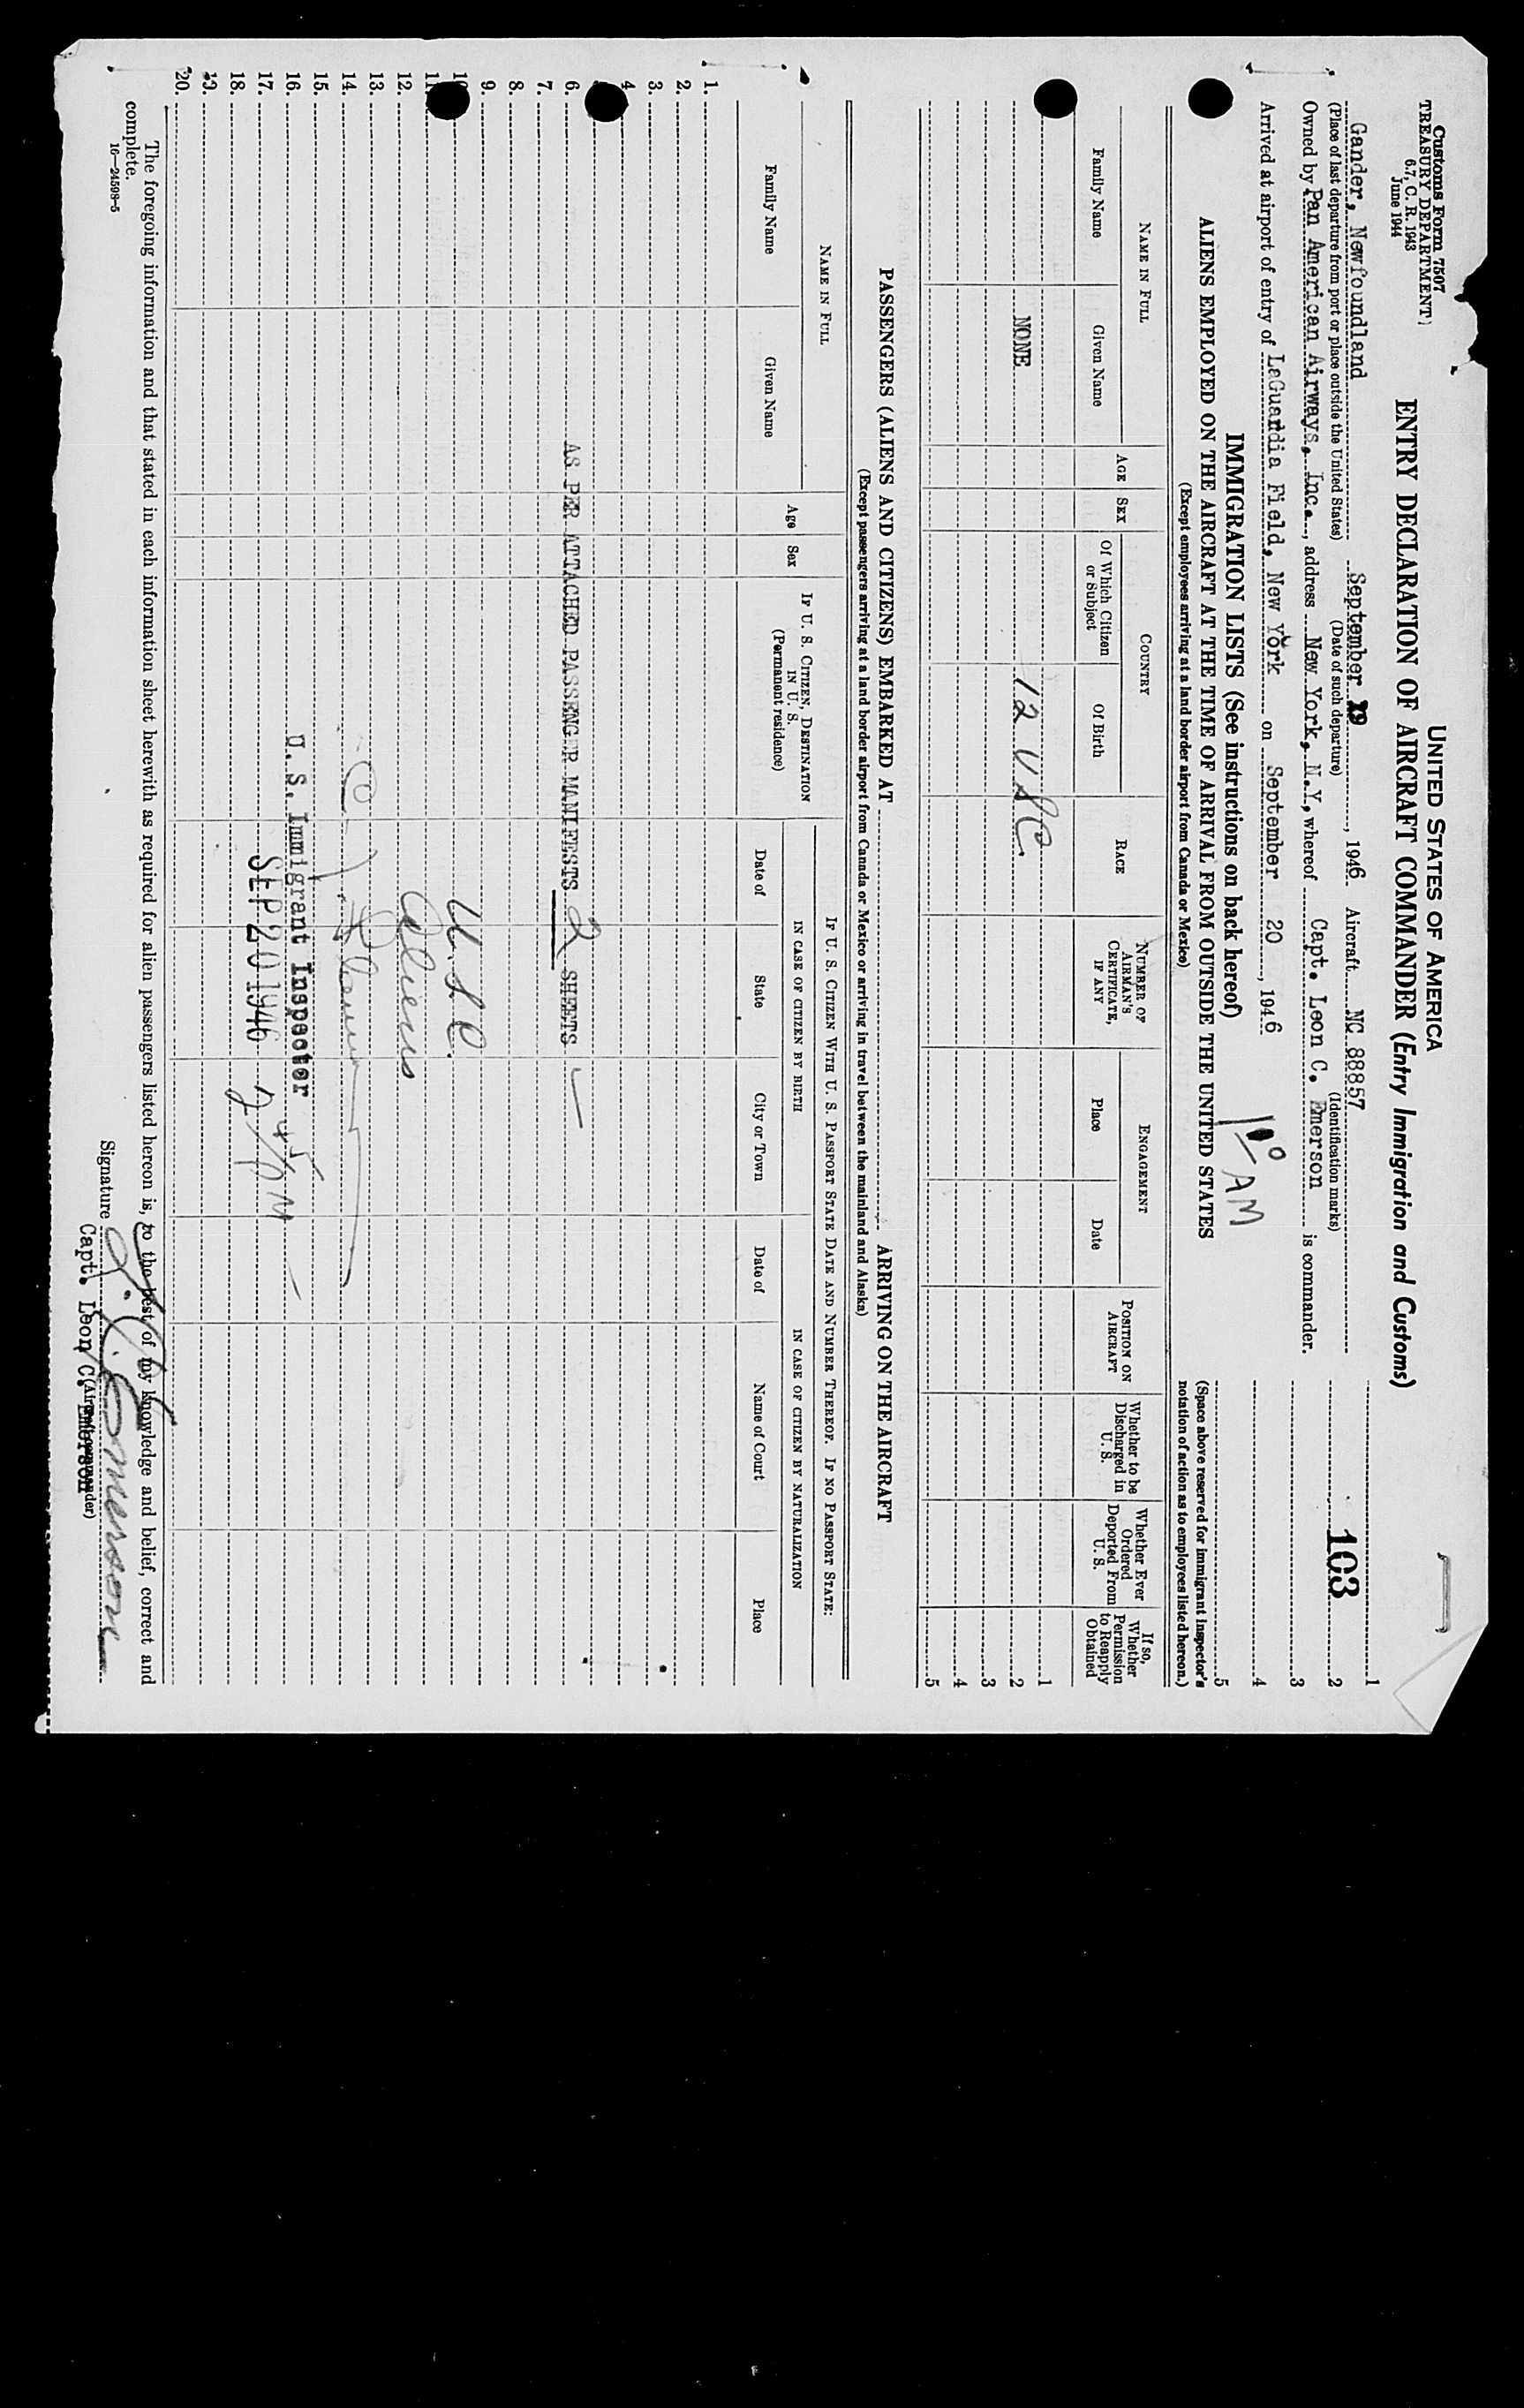 Customs Form 7507
TREASURY DEPARTMENT
6.7, C. R. 1943
June 1944
UNITED STATES OF AMERICA
ENTRY DECLARATION OF AIRCRAFT COMMANDER (Entry Immigration and Customs)
103
Gander, Newfoundland September 19, 1946 Aircraft NC 88857
(Place of last departure from port or place outside the United States) (Date of such departure) (Identification marks)
Owned by Pan American Airways, Inc., address New York, N.Y., whereof Capt. Leon C. Emerson is commander.
Arrived at airport of entry of LaGuardia Field, New York on September 20, 1946
AM
1
2
3
4
5
(Space above reserved for immigrant inspector's notation of action as to employees listed hereon.)
IMMIGRATION LISTS (See instructions on back hereof)
ALIENS EMPLOYED ON THE AIRCRAFT AT THE TIME OF ARRIVAL FROM OUTSIDE THE UNITED STATES
(Except employees arriving at a land border airport from Canada or Mexico)
NAME IN FULL
Family Name
Given Name
AGE
SEX
COUNTRY
Of Which Citizen or Subject
Of Birth
RACE
NUMBER OF AIRMAN'S CERTIFICATE, IF ANY
ENGAGEMENT
Place
Date
POSITION ON AIRCRAFT
Whether to be Discharged in U. S.
Whether Ever Ordered Deported From U. S.
If so, Whether Permission to Reapply Obtained
1
NONE 12 USC. 2
3
4
5
PASSENGERS (ALIENS AND CITIZENS) EMBARKED AT ARRIVING ON THE AIRCRAFT
(Except passengers arriving at a land border airport from Canada or Mexico or arriving in travel between the mainland and Alaska)
NAME IN FULL
Family Name
Given Name
Age
Sex
IF U. S. CITIZEN, DESTINATION IN U. S.
(Permanent residence)
IF U. S. CITIZEN WITH U. S. PASSPORT STATE DATE AND NUMBER THEREOF. IF NO PASSPORT STATE:
IN CASE OF CITIZEN BY BIRTH
IN CASE OF CITIZEN BY NATURALIZATION
Date of
State
City or Town
Date of
Name of Court
Place
1.
2.
3.
4
6. AS PER ATTACHED PASSENGER MANIFESTS 2 SHEETS
7.
8.
9.
10 U.S.C.
11
12. Aliens
13.
14.
15.
16. U. S. Immigrant Inspector
17. SEP 20 1946 2 45 AM
18.
19.
20.
The foregoing information and that stated in each information sheet herewith as required for alien passengers listed hereon is, to the best of my knowledge and belief, correct and
complete.
16—24598-5
Signature L. C. Emerson
Capt. Leon C. Emerson
(Aircraft commander)